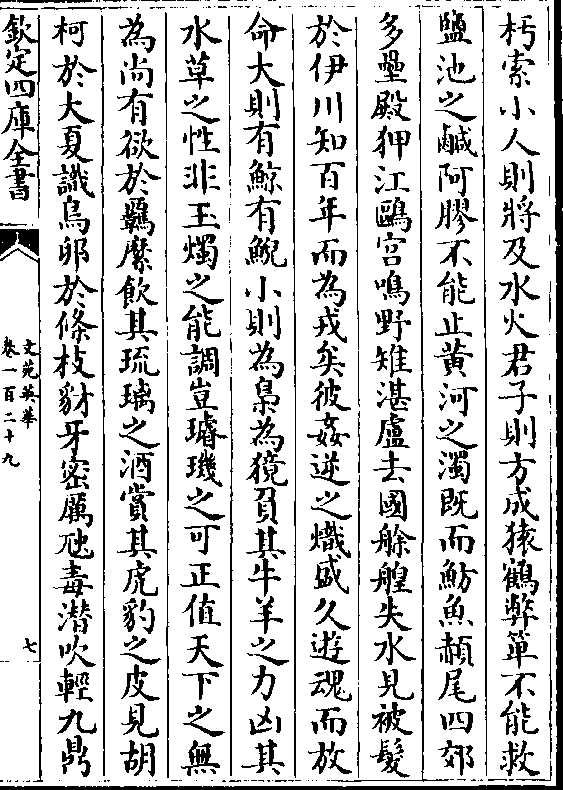 朽索小人則將及水火君子則方成猿鶴弊箄不能救
鹽池之鹹阿膠不能止黄河之濁既而魴魚赬尾四郊
多壘殿狎江鷗宫鳴野雉湛盧去國艅艎失水見被髮
於伊川知百年而為戎矣彼姦逆之熾盛久遊魂而放
命大則有鯨有鯢小則為梟為獍負其牛羊之力凶其
水草之性非玉燭之能調豈璿璣之可正值天下之無
為尚有欲於羈縻飲其琉璃之酒賞其虎豹之皮見胡
柯於大夏識烏卵於條枝豺牙密厲虺毒潜吹輕九鼎
欽定四庫全書
文苑英華
卷一百二十九
七